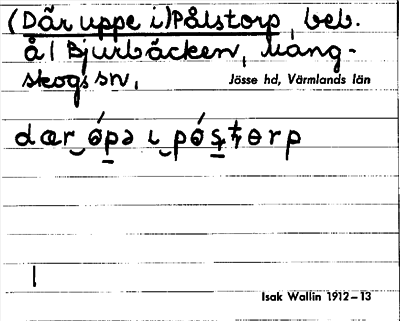 (Där uppe i) Pålstorp, beb.
å / Bjurbäcken, Mang-
skogs sn,
Jösse hd, Värmlands län
dær‿ópə ı‿pó̱ṣṭɵrp
Isak Wallin 1912–13